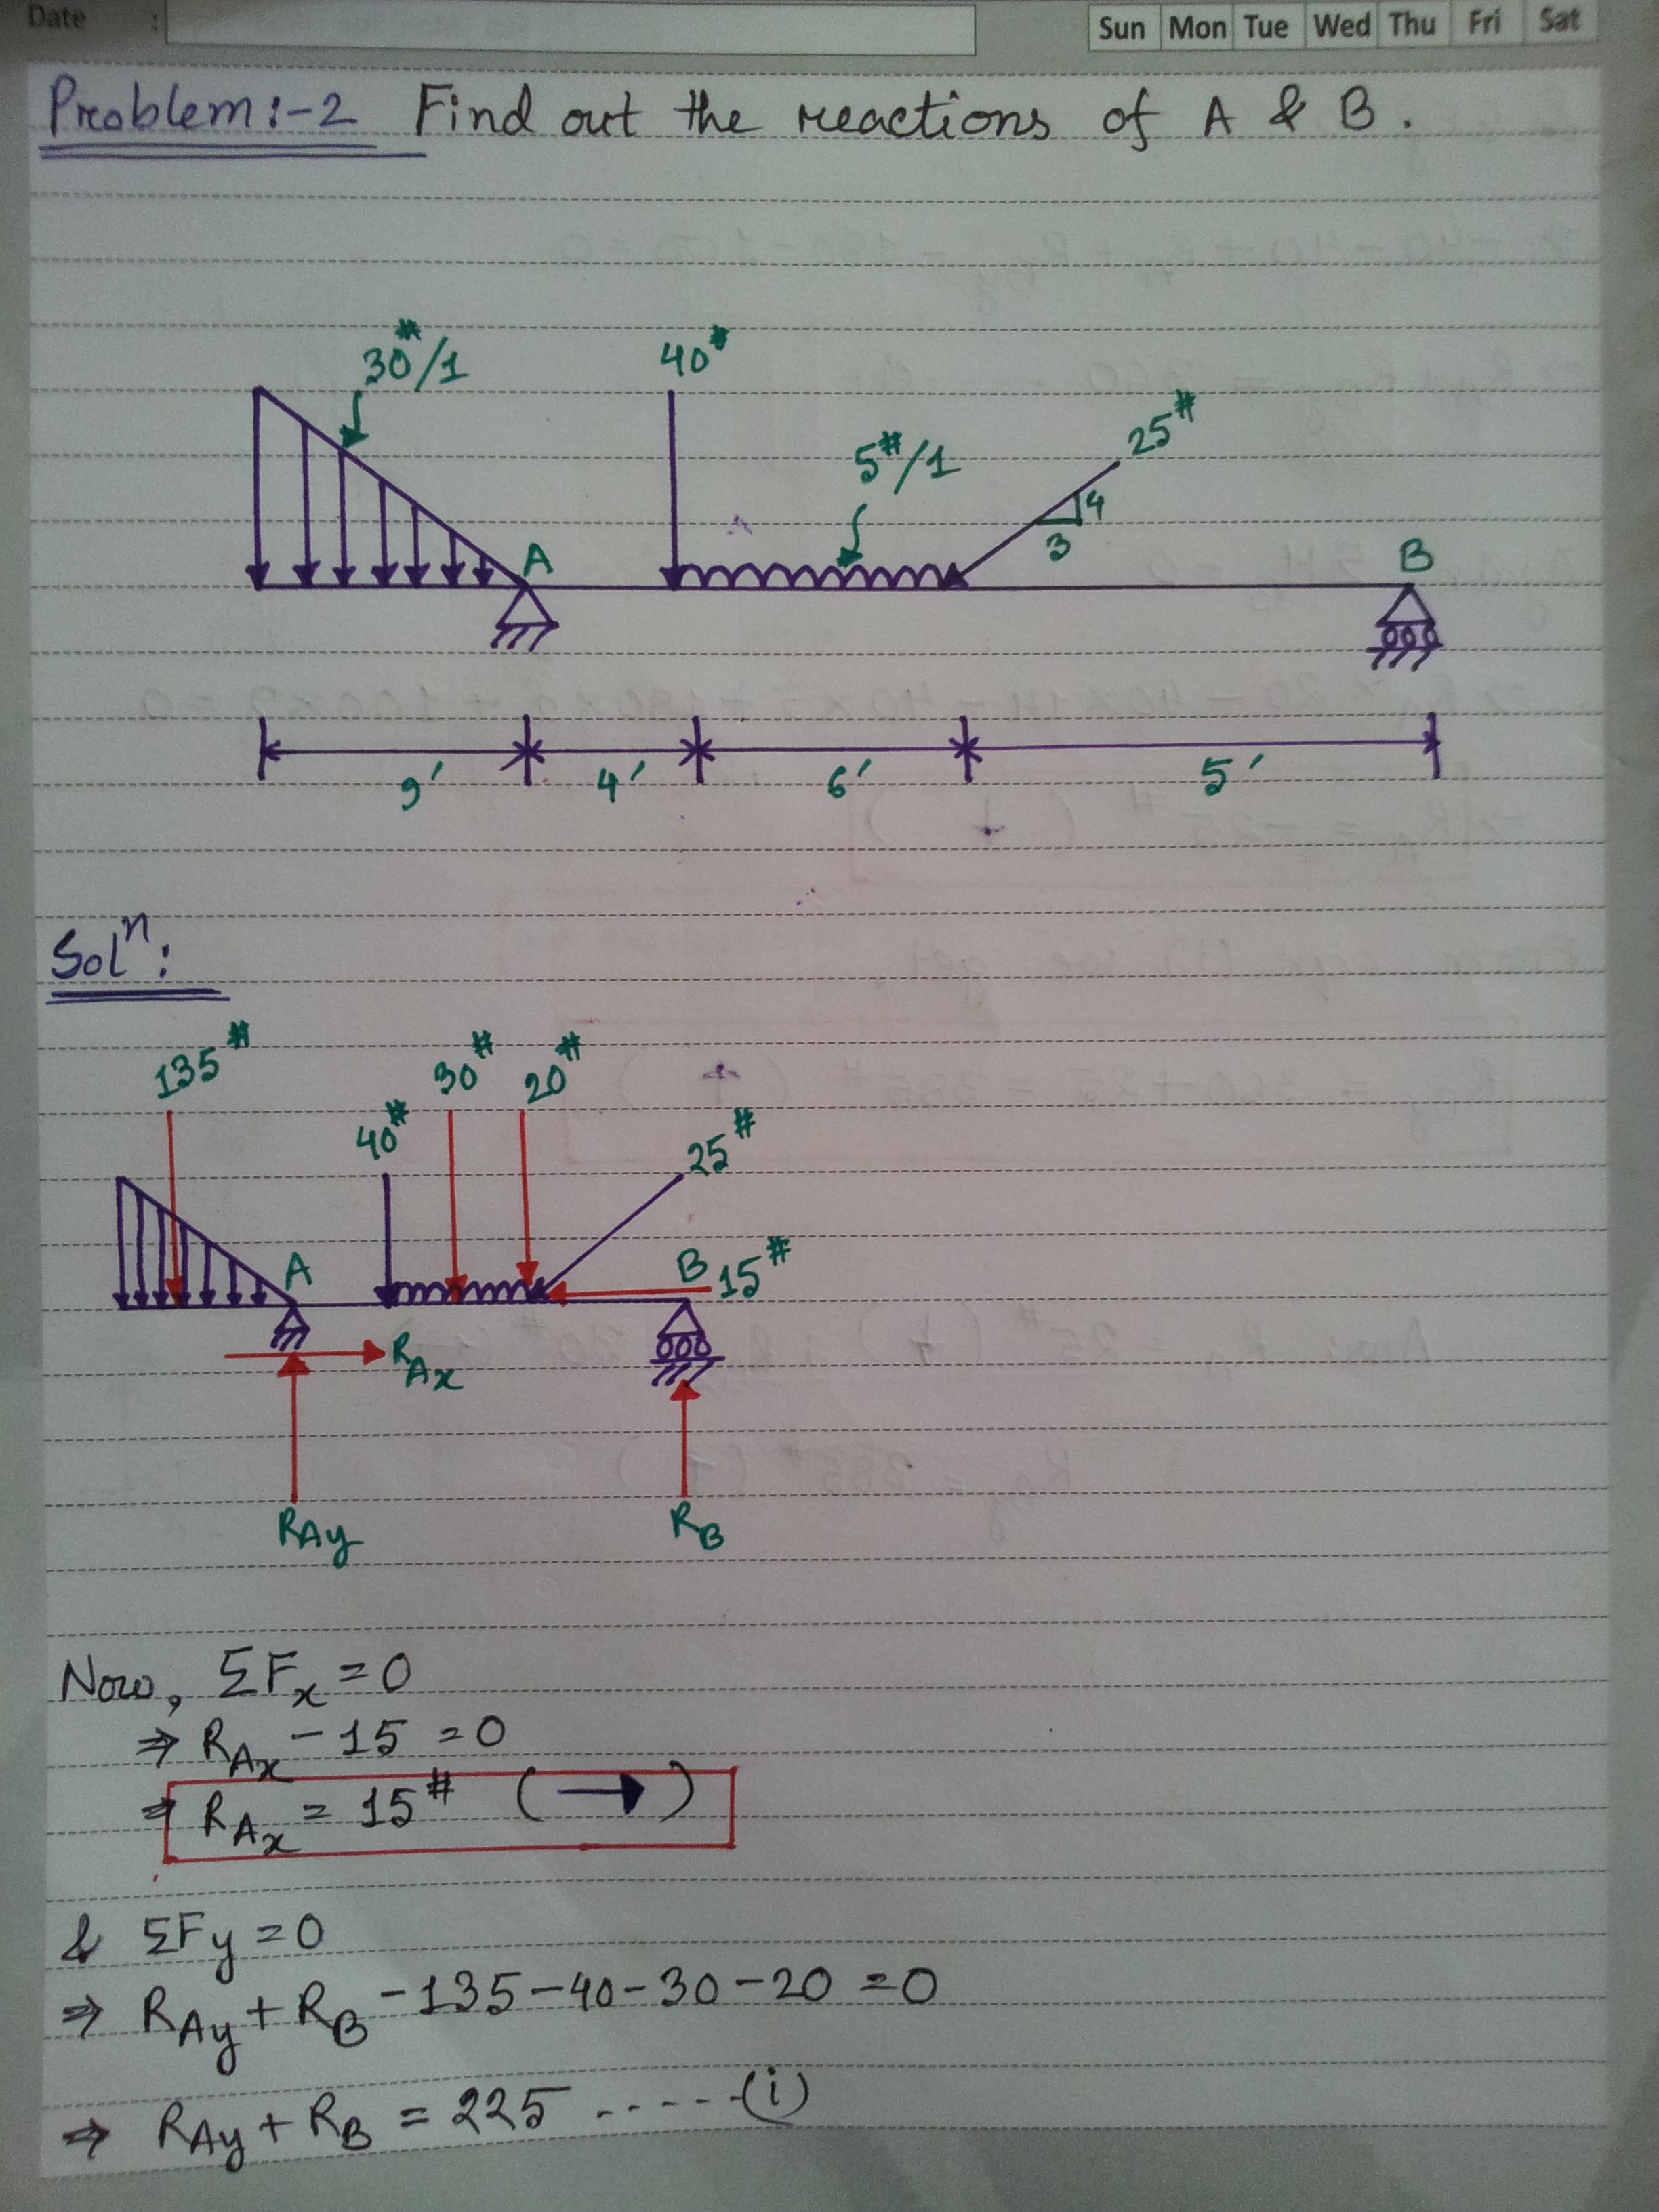 Date :
Sun Mon Tue Wed Thu Fri Sat
Problem:-2 Find out the reactions of A & B.
30#/1
40#
5#/1
25#
4
3
A
B
9' 4' 6' 5'
Solⁿ:
135#
30#
20#
40#
25#
A
B
15#
R_Ax
R_Ay
R_B
Now, ΣF_x = 0
⇒ R_Ax - 15 = 0
⇒ R_Ax = 15# (→)
& ΣF_y = 0
⇒ R_Ay + R_B - 135 - 40 - 30 - 20 = 0
⇒ R_Ay + R_B = 225 ----- (i)